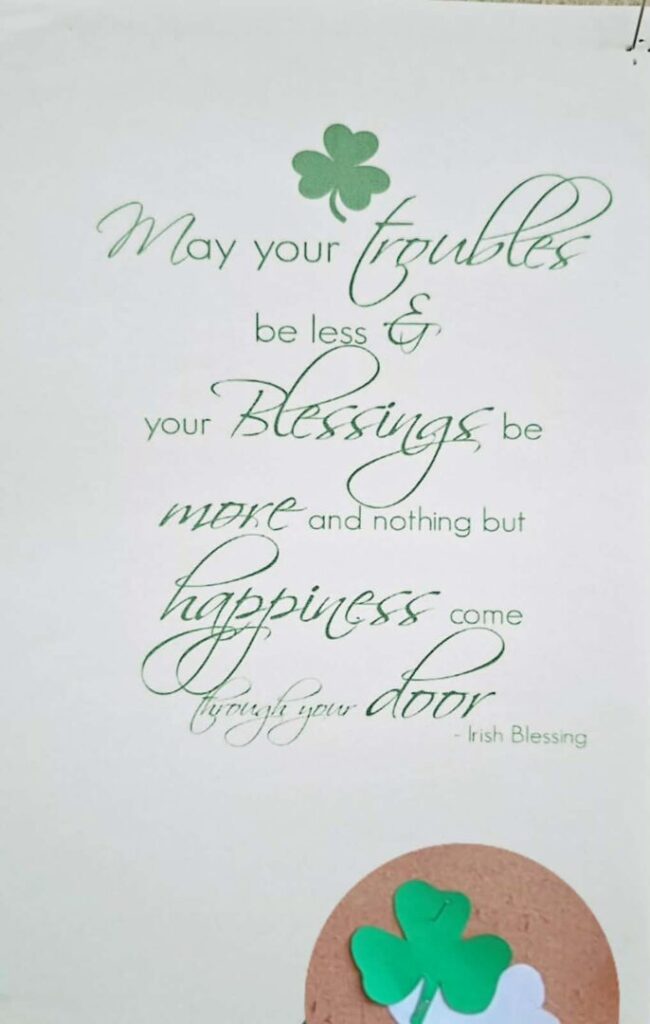 May your troubles
be less &
your Blessings be
more and nothing but
happiness come
through your door
- Irish Blessing